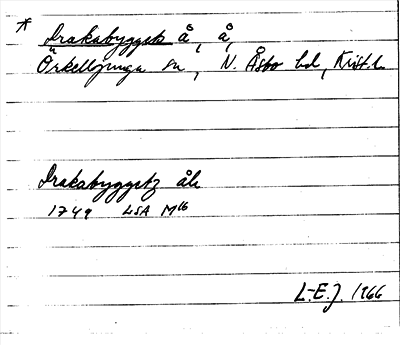 * Drakabyggets å, å,
Örkelljunga sn, N. Åsbo hd, Krist. l.
Drakabyggetz åh
1749 LSA M16
L-E.J. 1966